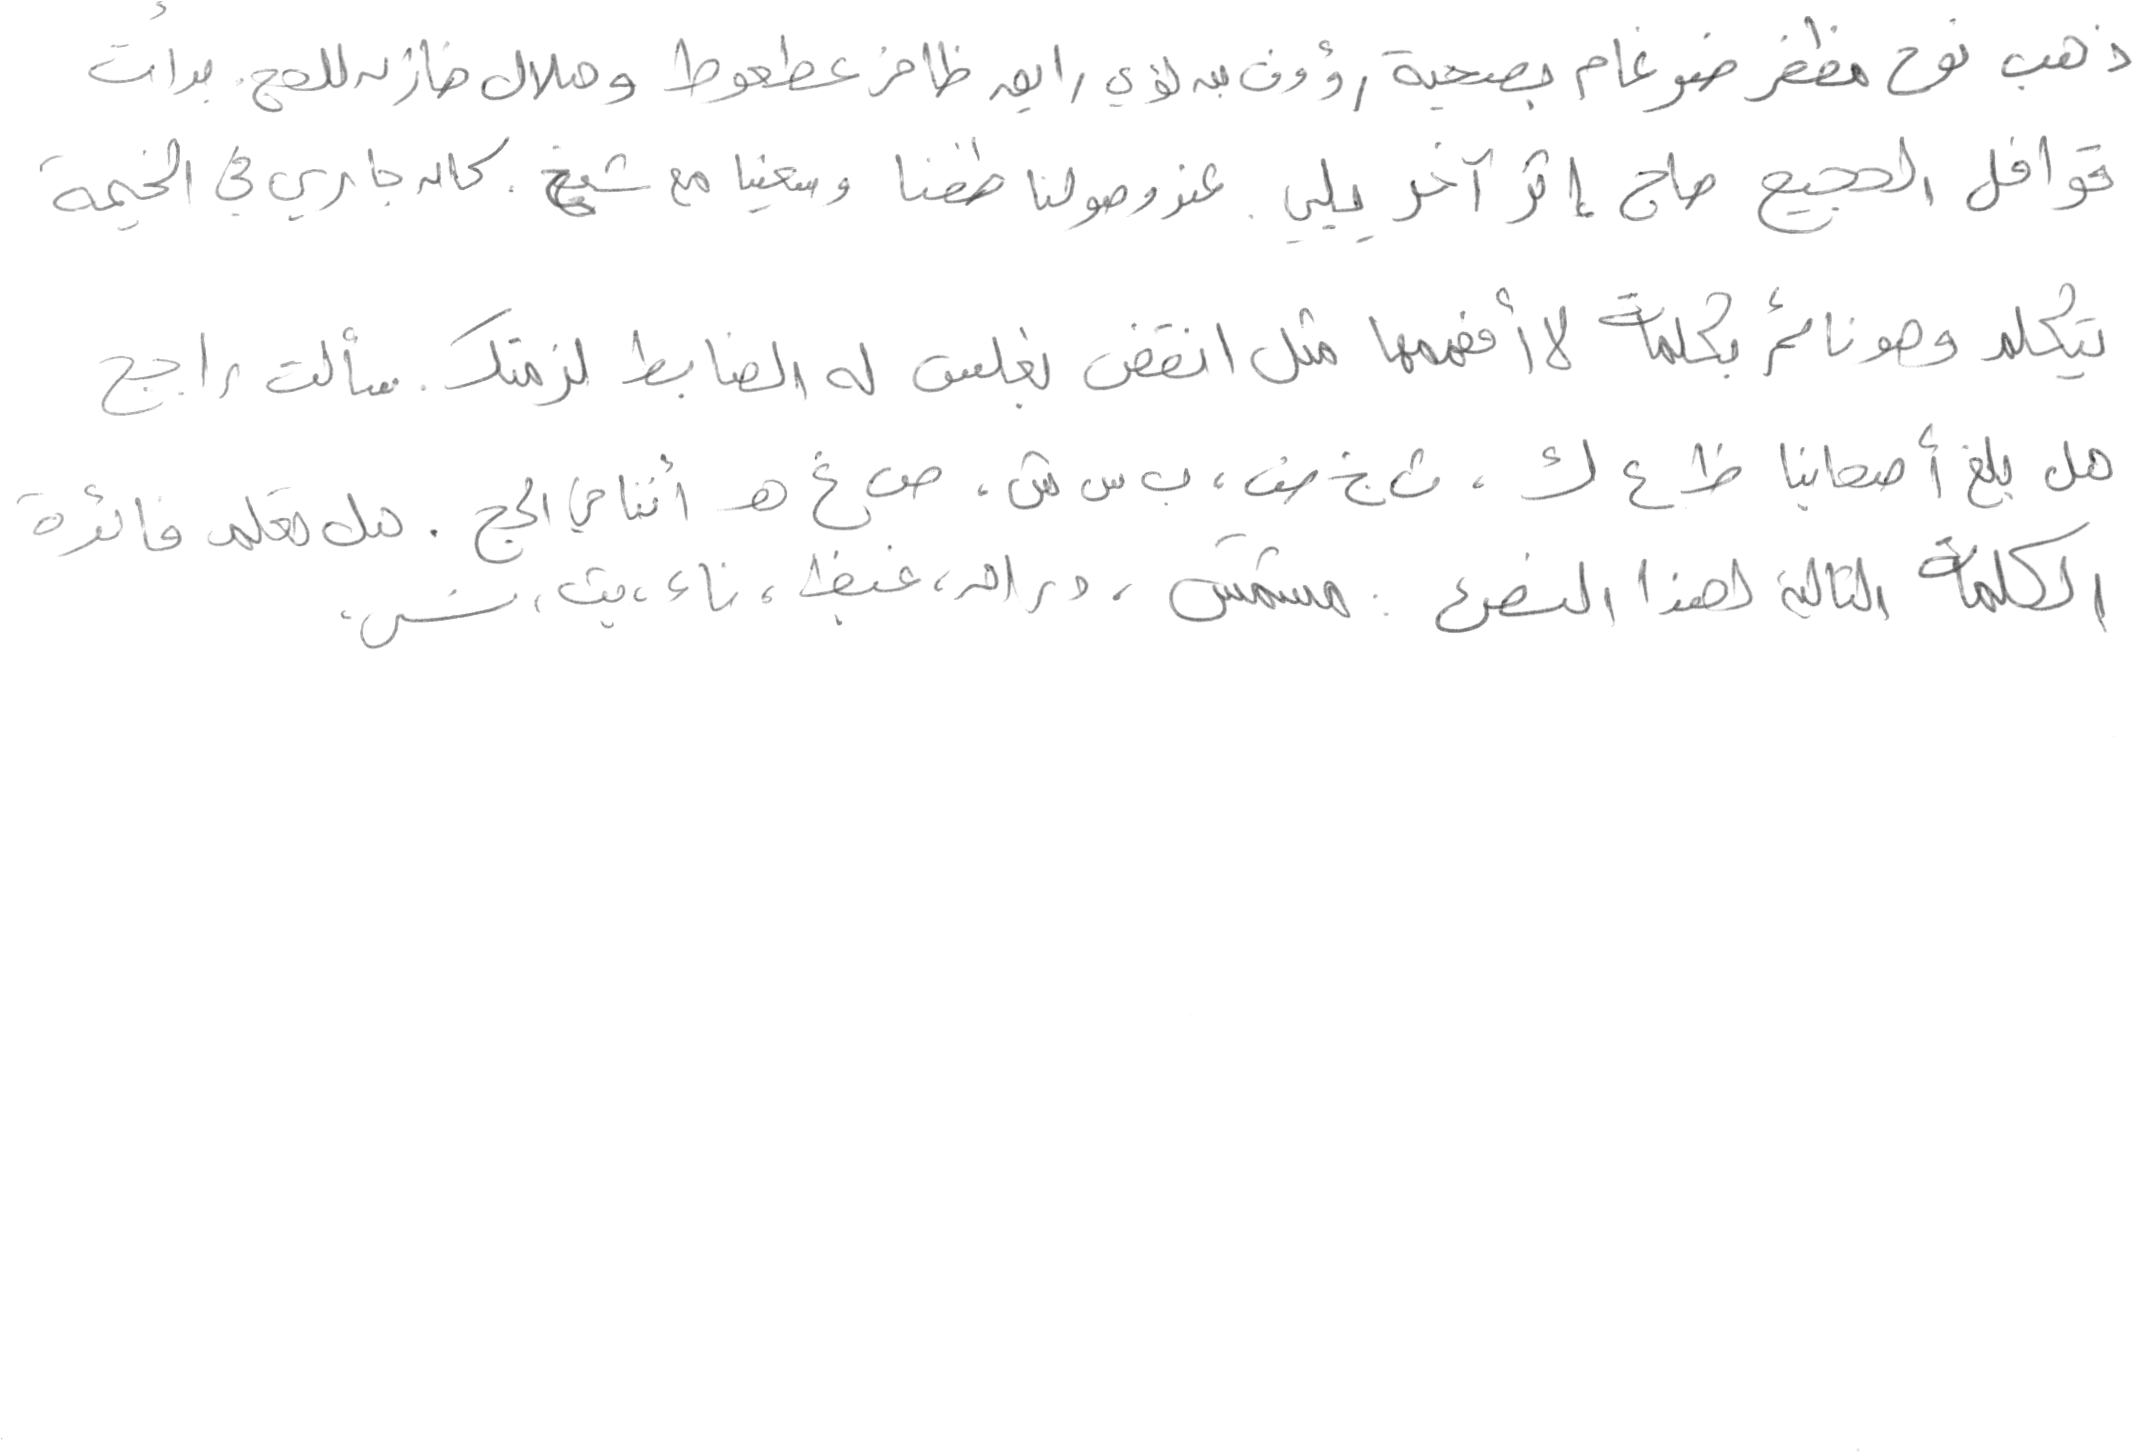 ذهب نوح مظفر ضرغام بصحبة رؤوف بن لؤي رايق ظافر عطعوط وهلال مازن للحج. بدأت
قوافل الحجيج حاج إثر آخر يلبي. عند وصولنا طفنا وسعينا مع شيخ. كان جاري في الخيمة
يتكلم وهو نائم بكلمات لا أفهمها مثل انقض بغلس له الضابط لزمتك. سألت راجح
هل بلغ أصحابنا ظ ع ك، ث خ ض، ب س ش، ص غ هـ أثناء الحج. هل تعلم فائدة
الكلمات التالية لهذا النص: مشمش، دراق، غيظ، ناء، بيت،